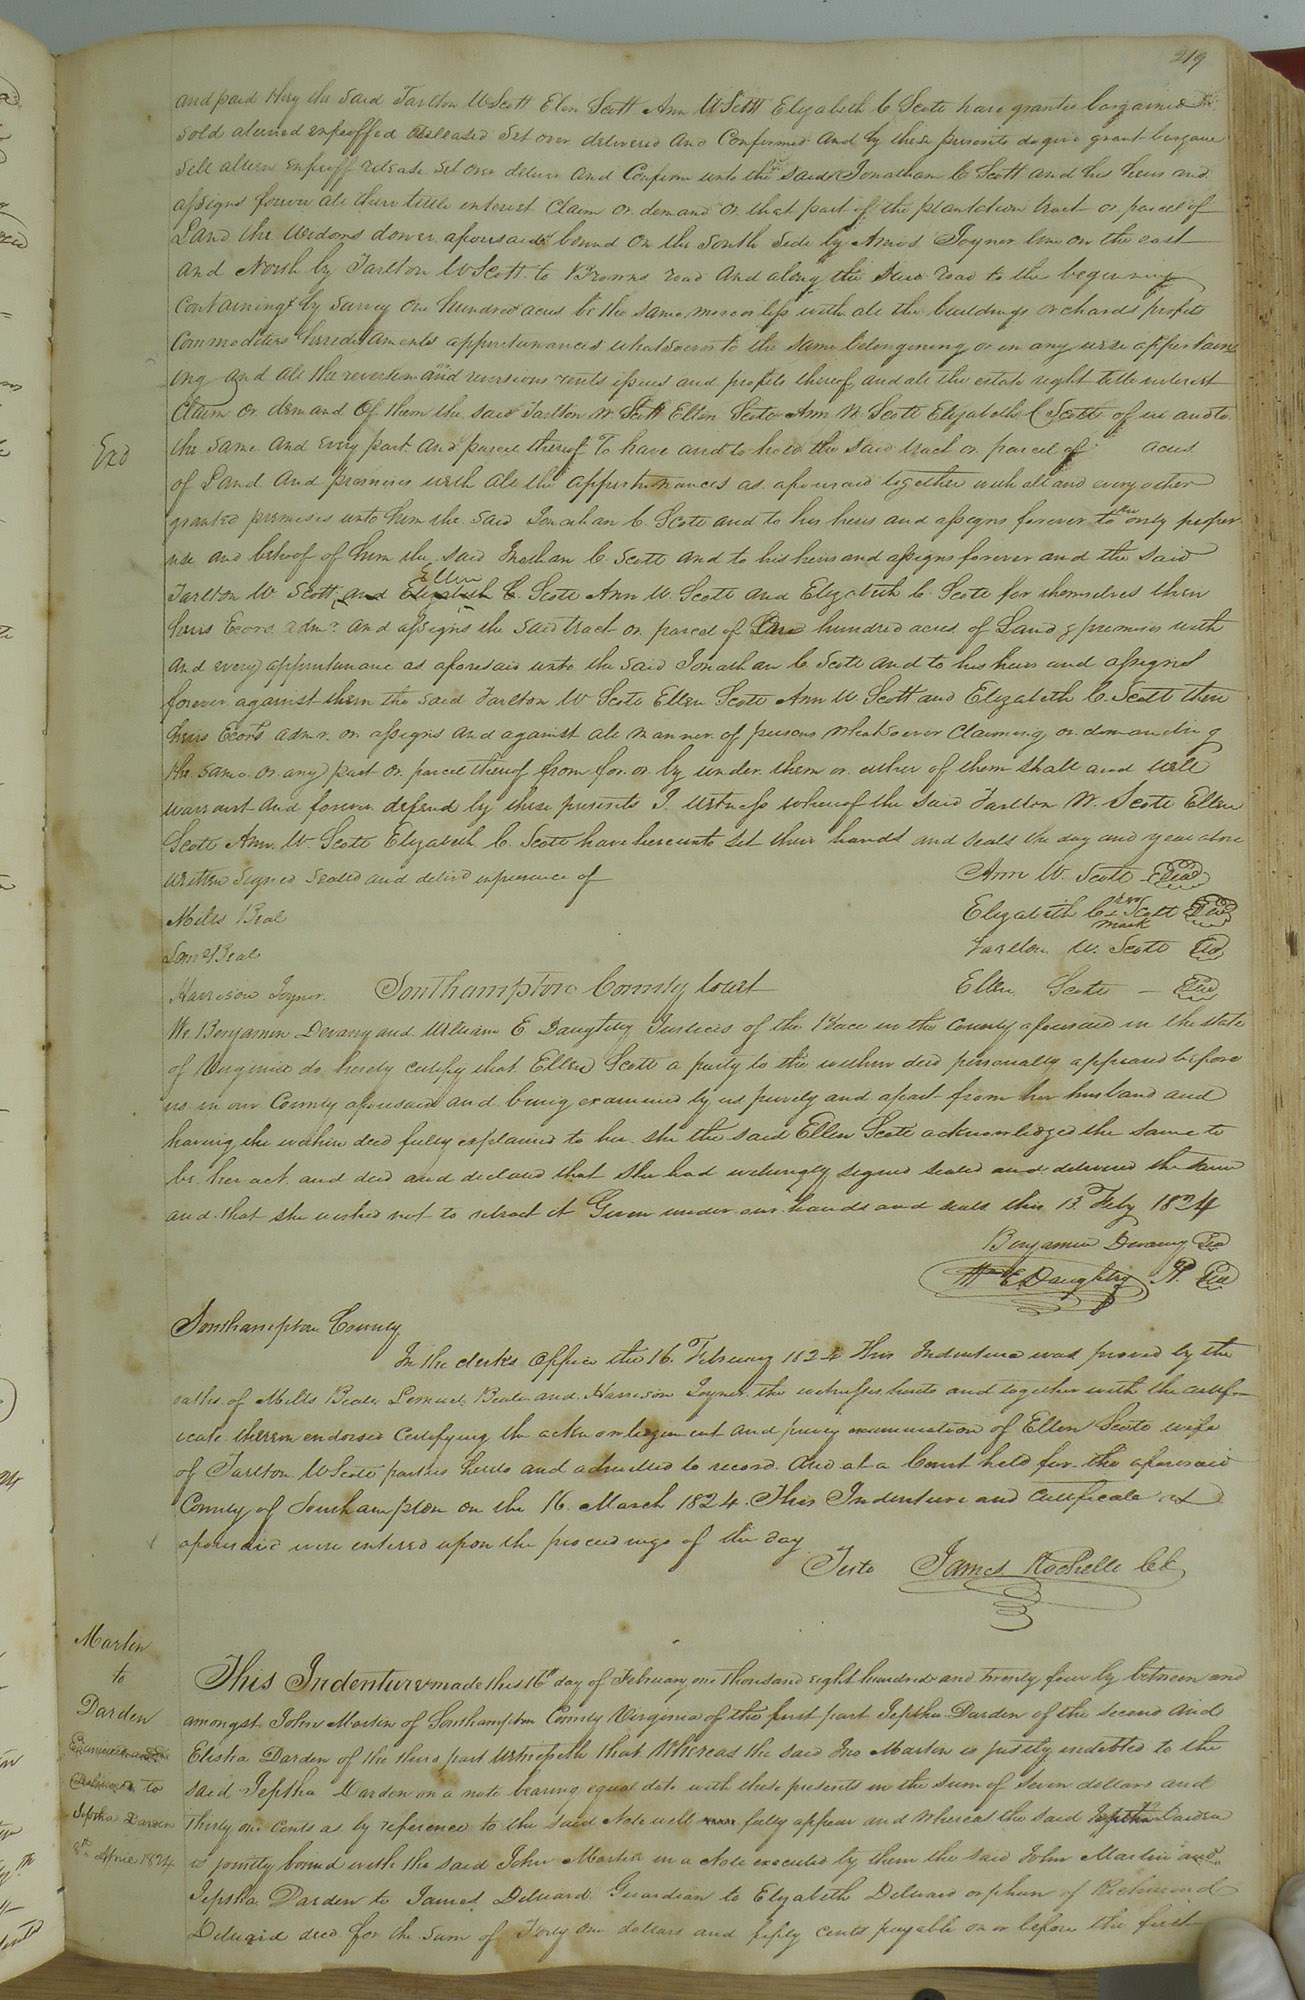 219
and paid they the said Tarlton W Scott Elen Scott Ann W Scott Elizabeth C Scott have granted bargained &
sold aliened enfeoffed released set over delivered and Confirmed and by these presents do give grant bargane
sell alien enfeoff release set over deliver and Confirm unto the said Jonathan C Scott and his heirs and
assigns forever all their tittle interest Claim or demand or that part of the plantation tract or parcel of
Land the widows dower aforesaid bound on the South Side by Amos Joyner line on the east
and North by Tarlton W Scott to Browns road and along the said road to the beginning
Containing by survey One hundred acres be the same more or less with all the buildings orchards profits
Commodities hereditaments appurtunances whatsoever to the same belongening or in any wise appertain
ing and all the reversion and reversions rents issues and profits thereof and all the estate right title interest
Claim or demand Of them the said Tarlton W Scott Ellen Scott Ann W Scott Elizabeth C Scott of in and to
Exd
the same and every part and parcel thereof To have and to hold the said tract or parcel of acres
of Land and premises with all the appurtunances as aforesaid together with all and every other
granted premises unto him the said Jonathan C Scott and to his heirs and assigns forever to the only proper
use and behoof of him the said Jnathan C Scott and to his heirs and assigns forever and the said
Ellen
Tarlton W Scott and Elizabeth C. Scott Ann W. Scott and Elizabeth C. Scott for themselves their
heirs Ecors admr. and assigns the said tract or parcel of One hundred acres of Land & premises with
and every appurtunance as aforesaid unto the said Jonathan C Scott and to his heirs and assigns
forever against them the said Tarlton W Scott Ellen Scott Ann W Scott and Elizabeth C. Scott their
heirs Ecors admr. or assigns and against all manner of persons whatsoever Claiming or demanding
the same or any part or parcel thereof from for or by under them or either of them shall and will
warrant and forever defend by these presents I. witness whereof the said Tarlton W. Scott Ellen
Scott Ann. W. Scott Elizabeth C. Scott have hereunto set their hands and seals the day and year above
written Signed sealed and delivd inpresence of
Ann W. Scott Seal
Mills Beal
Elizabeth C her x mark Scott Seal
Leml Beal
Tarlton W. Scott Seal
Harrison Joyner. Southampton County Court
Ellen Scott Seal
We Benjamin Devany and William E Daughtry Justices of the Peace in the County aforesaid in the state
of Virginia do hereby certify that Ellen Scott a party to the within deed personally appeared before
us in our County aforesaid and being examined by us privily and apart from her husband and
having the within deed fully explained to her she the said Ellen Scott acknowledged the same to
be her act and deed and declared that she had willingly signed sealed and delivered the same
and that she wished not to retract it Given under our hands and seals this 13 Feby 1824
Benjamin Devany Seal
Wm E Daughtry JP. Seal
Southampton County
In the clerks office the 16. February 1824 This Indenture was proved by the
oaths of Mills Beale Lemuel Beale and Harrison Joyner the witnesses hereto and together with the certif
icate thereon endorsed Certifying the acknowledgement and privy examination of Ellen Scott wife
of Tarlton W Scott parties hereto and admitted to record. And at a Court held for the aforesaid
County of Southampton on the 16. March 1824. This Indenture and Certificate as
aforesaid were entered upon the proceedings of the day
Teste James Rochelle CC
Martin
to
Darden
Examined and
delivered to
Jeptha Darden
8th April 1824
This Indenture made this 16th day of February one thousand eight hundred and twenty four by between and
amongst John Martin of Southampton County Virginia of the first part Jeptha Darden of the second and
Elisha Darden of the third part witnesseth that Whereas the said Jno Martin is justly indebted to the
said Jeptha Darden on a note bearing equal date with these presents in the sum of seven dollars and
thirty one cents as by reference to the said Note will more fully appear and whereas the said Jeptha Darden
is jointly bound with the said John Martin in a Note executed by them the said John Martin and
Jeptha Darden to James Delward Guardian to Elizabeth Delward orphan of Richmond
Delward decd for the sum of Forty one dollars and fifty cents payable on or before the first